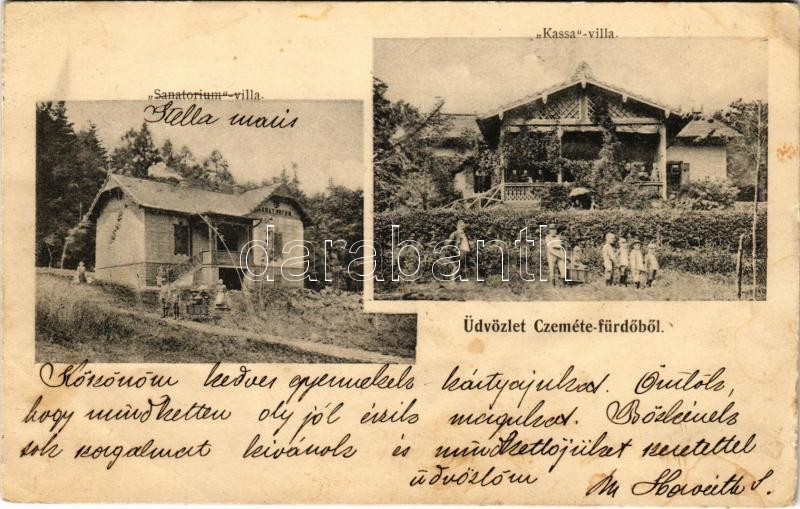 „Kassa"-villa.
„Sanatorium"-villa.
Stella maris
SANATORIUM
darabanth.com
Üdvözlet Czeméte-fürdőből.
Köszönöm kedves gyermekek kártyájukat. Örülök,
hogy mindketten oly jól érzik magukat. Böskének
sok szorgalmat kívánok és mindkettőjüket szeretettel
üdvözlöm
Horváth S.